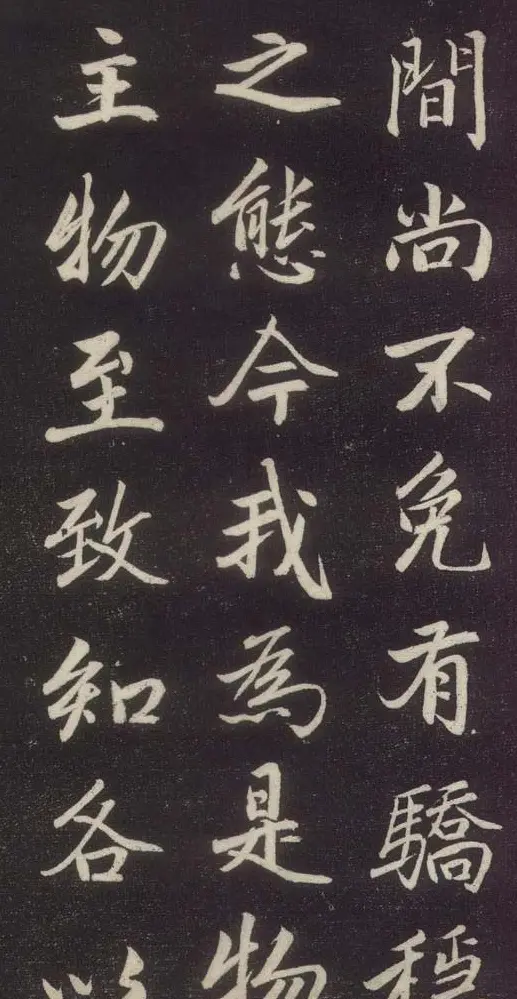 間尚不免有驕稚
之態今我為是物
主物至致知各以